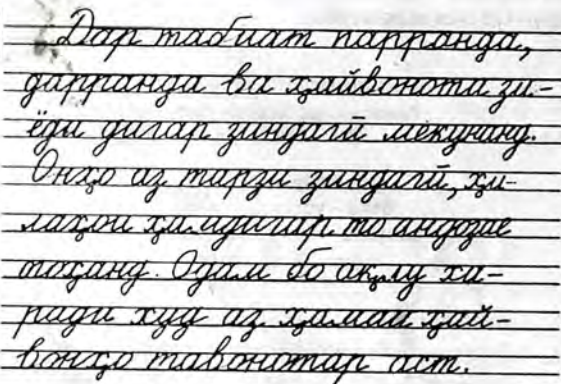 Дар табиат парранда,
дарранда ва ҳайвоноти зи-
ёди дигар зиндагӣ мекунанд.
Онҳо аз тарзи зиндагӣ, ҳи-
лаҳои ҳамдигар то андозае
огоҳанд. Одам бо ақлу хи-
ради худ аз ҳамаи ҳай-
вонҳо тавонотар аст.